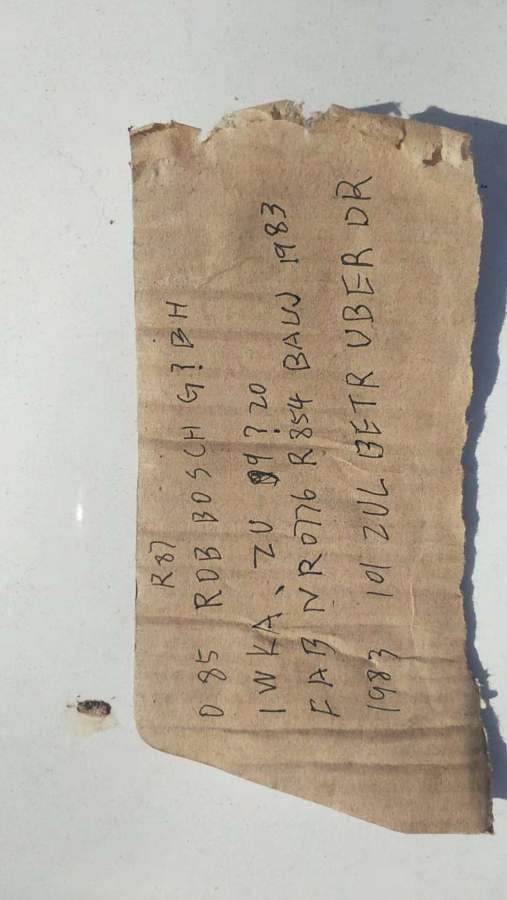 R87
D 85 ROB BOSCH G?BH
IWKA, ZU 9?20
FAB NR 0776 R854 BAUJ 1983
1983 101 ZUL BETR UBER DR